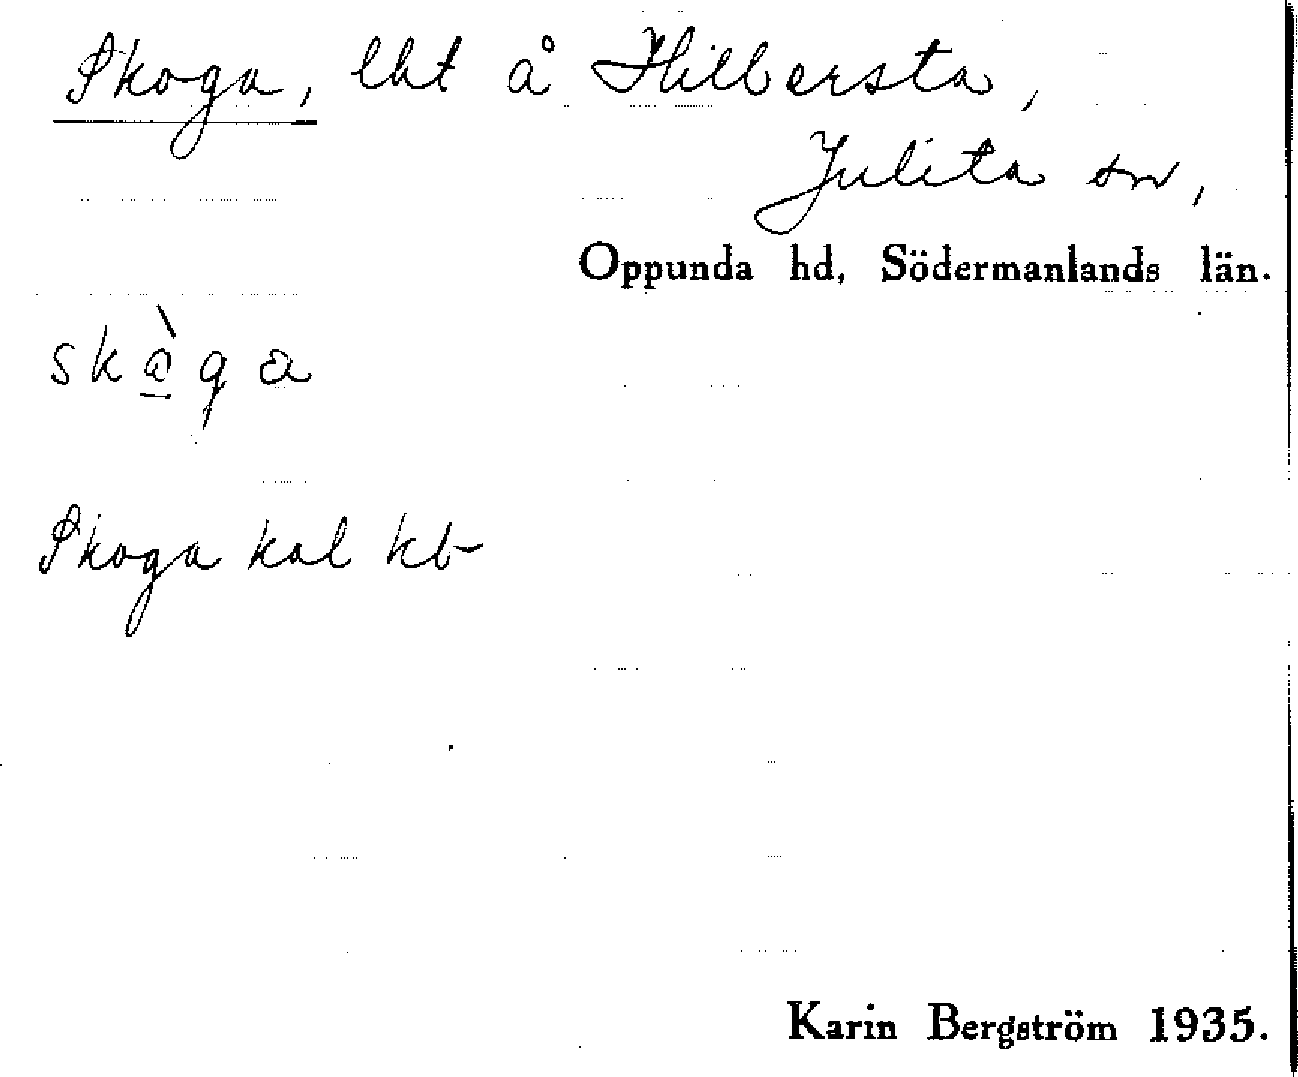 Skoga, lht å Hilbersta,
Julita sn,
Oppunda hd, Södermanlands län.
skòga
Skoga kal kb
Karin Bergström 1935.